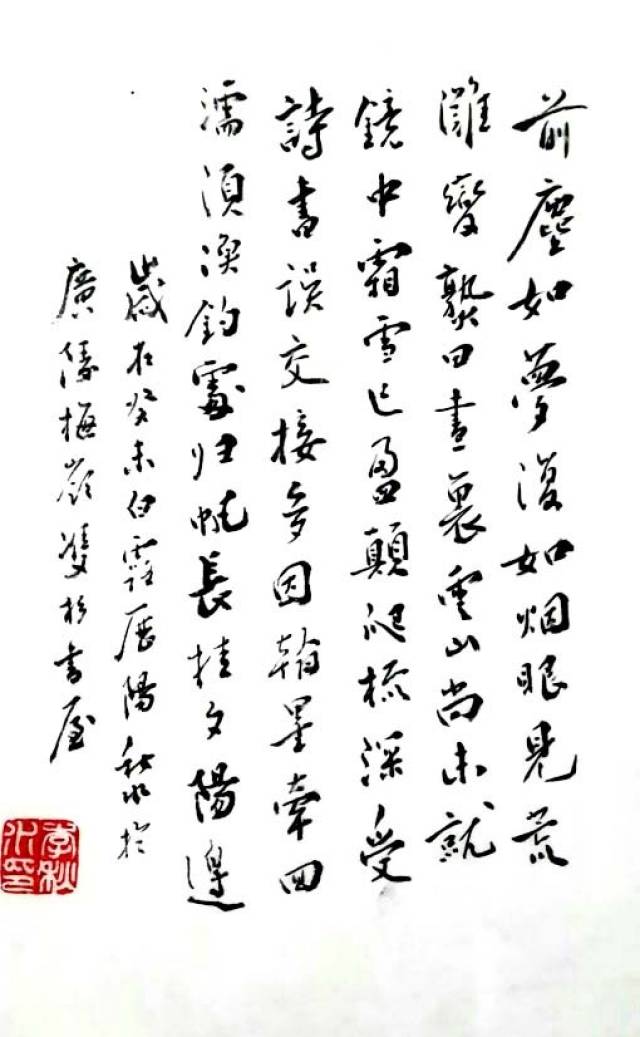 前塵如夢復如烟眼見荒
灘變熟田畫裏雲山尚未就
鏡中霜雪已盈顛爬梳深受
詩書誤交接多因翰墨牽回
濡須漁釣處归帆長挂夕陽邊
歲在癸未白露厯陽秋水於
廣陵梅嶺雙杉書屋
李秋水印